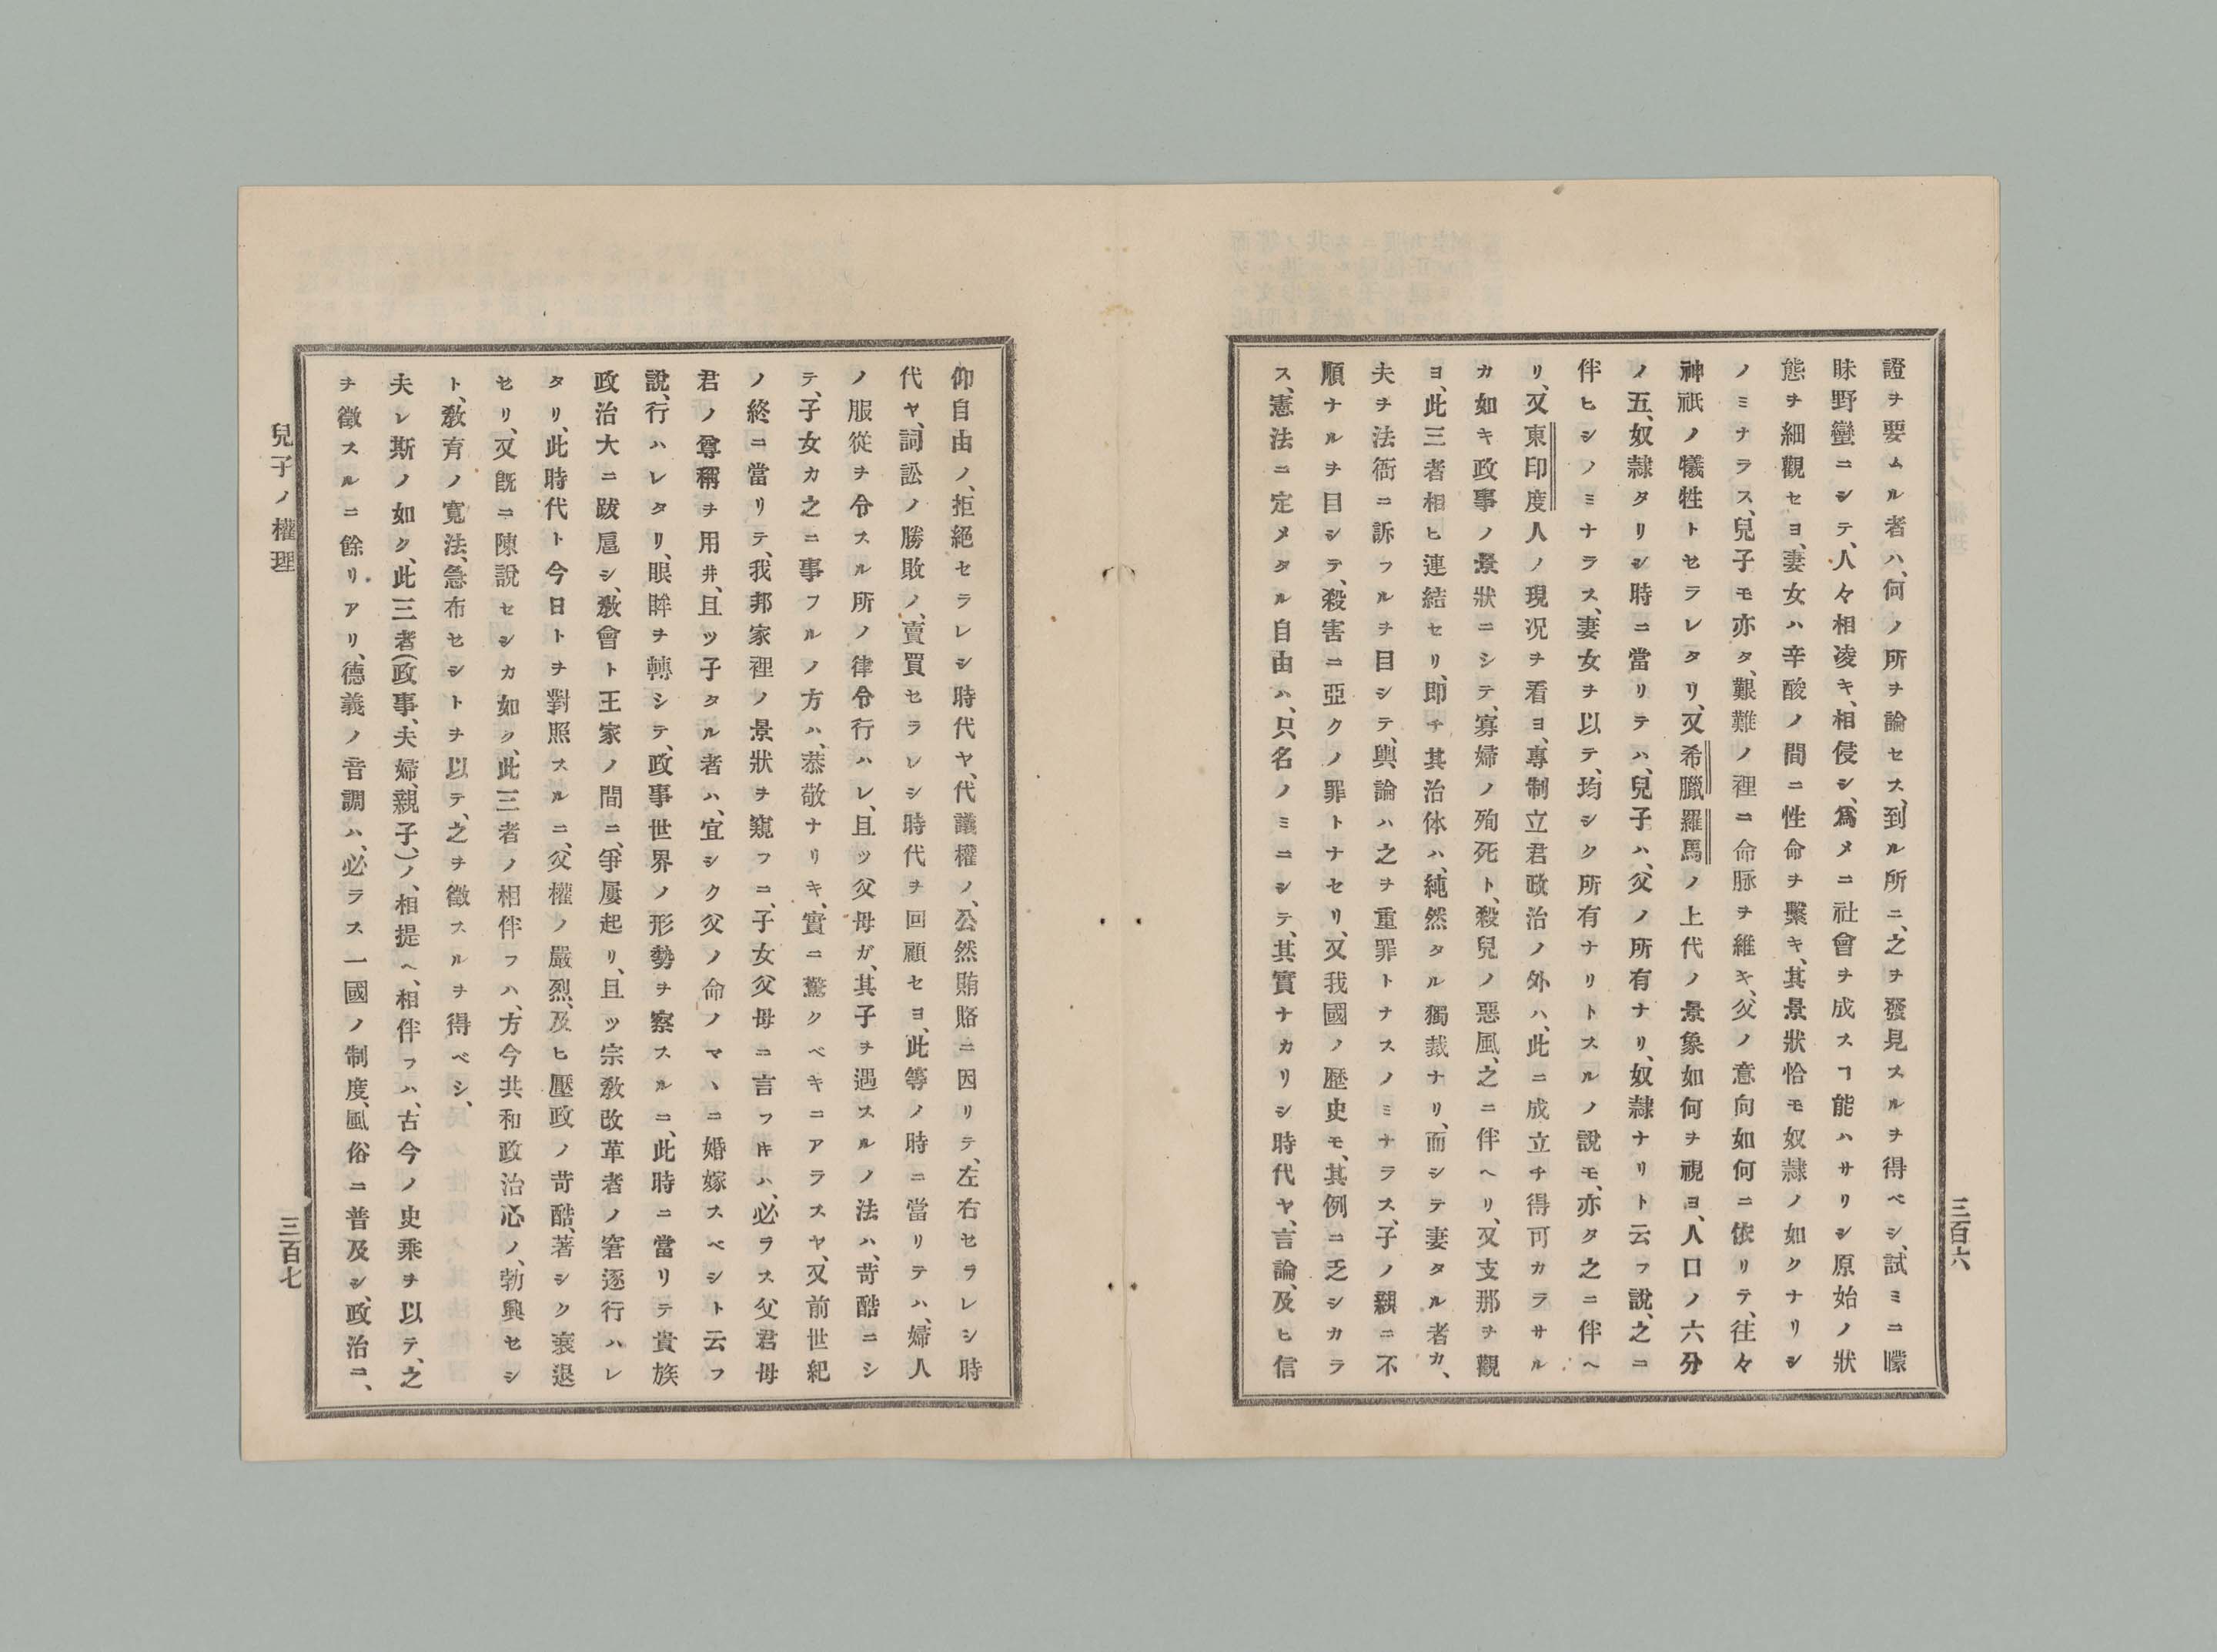 三百六
證ヲ要ムル者ハ、何ノ所ヲ論セス、到ル所ニ、之ヲ發見スルヲ得ベシ、試ミニ矇
昧野蠻ニシテ、人々相凌キ、相侵シ、爲メニ社會ヲ成スヿ能ハサリシ原始ノ狀
態ヲ細觀セヨ、妻女ハ辛酸ノ間ニ性命ヲ繫キ、其景狀恰モ奴隷ノ如クナリシ
ノミナラス、兒子モ亦タ、艱難ノ裡ニ命脉ヲ維キ、父ノ意向如何ニ依リテ、往々
神祇ノ犧牲トセラレタリ、又希臘羅馬ノ上代ノ景象如何ヲ視ヨ、人口ノ六分
ノ五、奴隷タリシ時ニ當リテハ、兒子ハ、父ノ所有ナリ、奴隷ナリト云フ說、之ニ
伴ヒシノミナラス、妻女ヲ以テ、均シク所有ナリトスルノ說モ、亦タ之ニ伴ヘ
リ、又東印度人ノ現况ヲ看ヨ、專制立君政治ノ外ハ、此ニ成立チ得可カラサル
カ如キ政事ノ景狀ニシテ、寡婦ノ殉死ト、殺兒ノ惡風、之ニ伴ヘリ、又支那ヲ觀
ヨ、此三者相ヒ連結セリ、卽チ其治体ハ、純然タル獨裁ナリ、而シテ妻タル者カ、
夫ヲ法衙ニ訴フルヲ目シテ、輿論ハ之ヲ重罪トナスノミナラス、子ノ親ニ不
順ナルヲ目シテ、殺害ニ亞クノ罪トナセリ、又我國ノ歷史モ、其例ニ乏シカラ
ス、憲法ニ定メタル自由ハ、只名ノミニシテ、其實ナカリシ時代ヤ、言論、及ヒ信
仰自由ノ、拒絕セラレシ時代ヤ、代議權ノ、公然賄賂ニ因リテ、左右セラレシ時
代ヤ、詞訟ノ勝敗ノ、賣買セラレシ時代ヲ回顧セヨ、此等ノ時ニ當リテハ、婦人
ノ服從ヲ令スル所ノ律令行ハレ、且ツ父母ガ、其子ヲ遇スルノ法ハ、苛酷ニシ
テ、子女カ之ニ事フルノ方ハ、恭敬ナリキ、實ニ驚クベキニアラスヤ、又前世紀
ノ終ニ當リテ、我邦家裡ノ景狀ヲ窺フニ、子女父母ニ言フキハ、必ラス父君母
君ノ尊稱ヲ用井、且ツ子タル者ハ、宜シク父ノ命ノマヽニ婚嫁スベシト云フ
說、行ハレタリ、眼眸ヲ轉シテ、政事世界ノ形勢ヲ察スルニ、此時ニ當リテ貴族
政治大ニ跋扈シ、敎會ト王家ノ間ニ、爭屢起リ、且ツ宗敎改革者ノ窘逐行ハレ
タリ、此時代ト今日トヲ對照スルニ、父權ノ嚴烈、及ヒ壓政ノ苛酷、著シク衰退
セリ、又旣ニ陳說セシカ如ク、此三者ノ相伴フハ、方今共和政治心ノ、勃興セシ
ト、敎育ノ寬法、急布セシトヲ以テ、之ヲ徵スルヲ得ベシ、
夫レ斯ノ如ク、此三者(政事、夫婦、親子、)ノ、相提ヘ、相伴フハ、古今ノ史乘ヲ以テ、之
ヲ徵スルニ餘リアリ、德義ノ音調ハ、必ラス一國ノ制度、風俗ニ普及シ、政治ニ、
兒子ノ權理
三百七